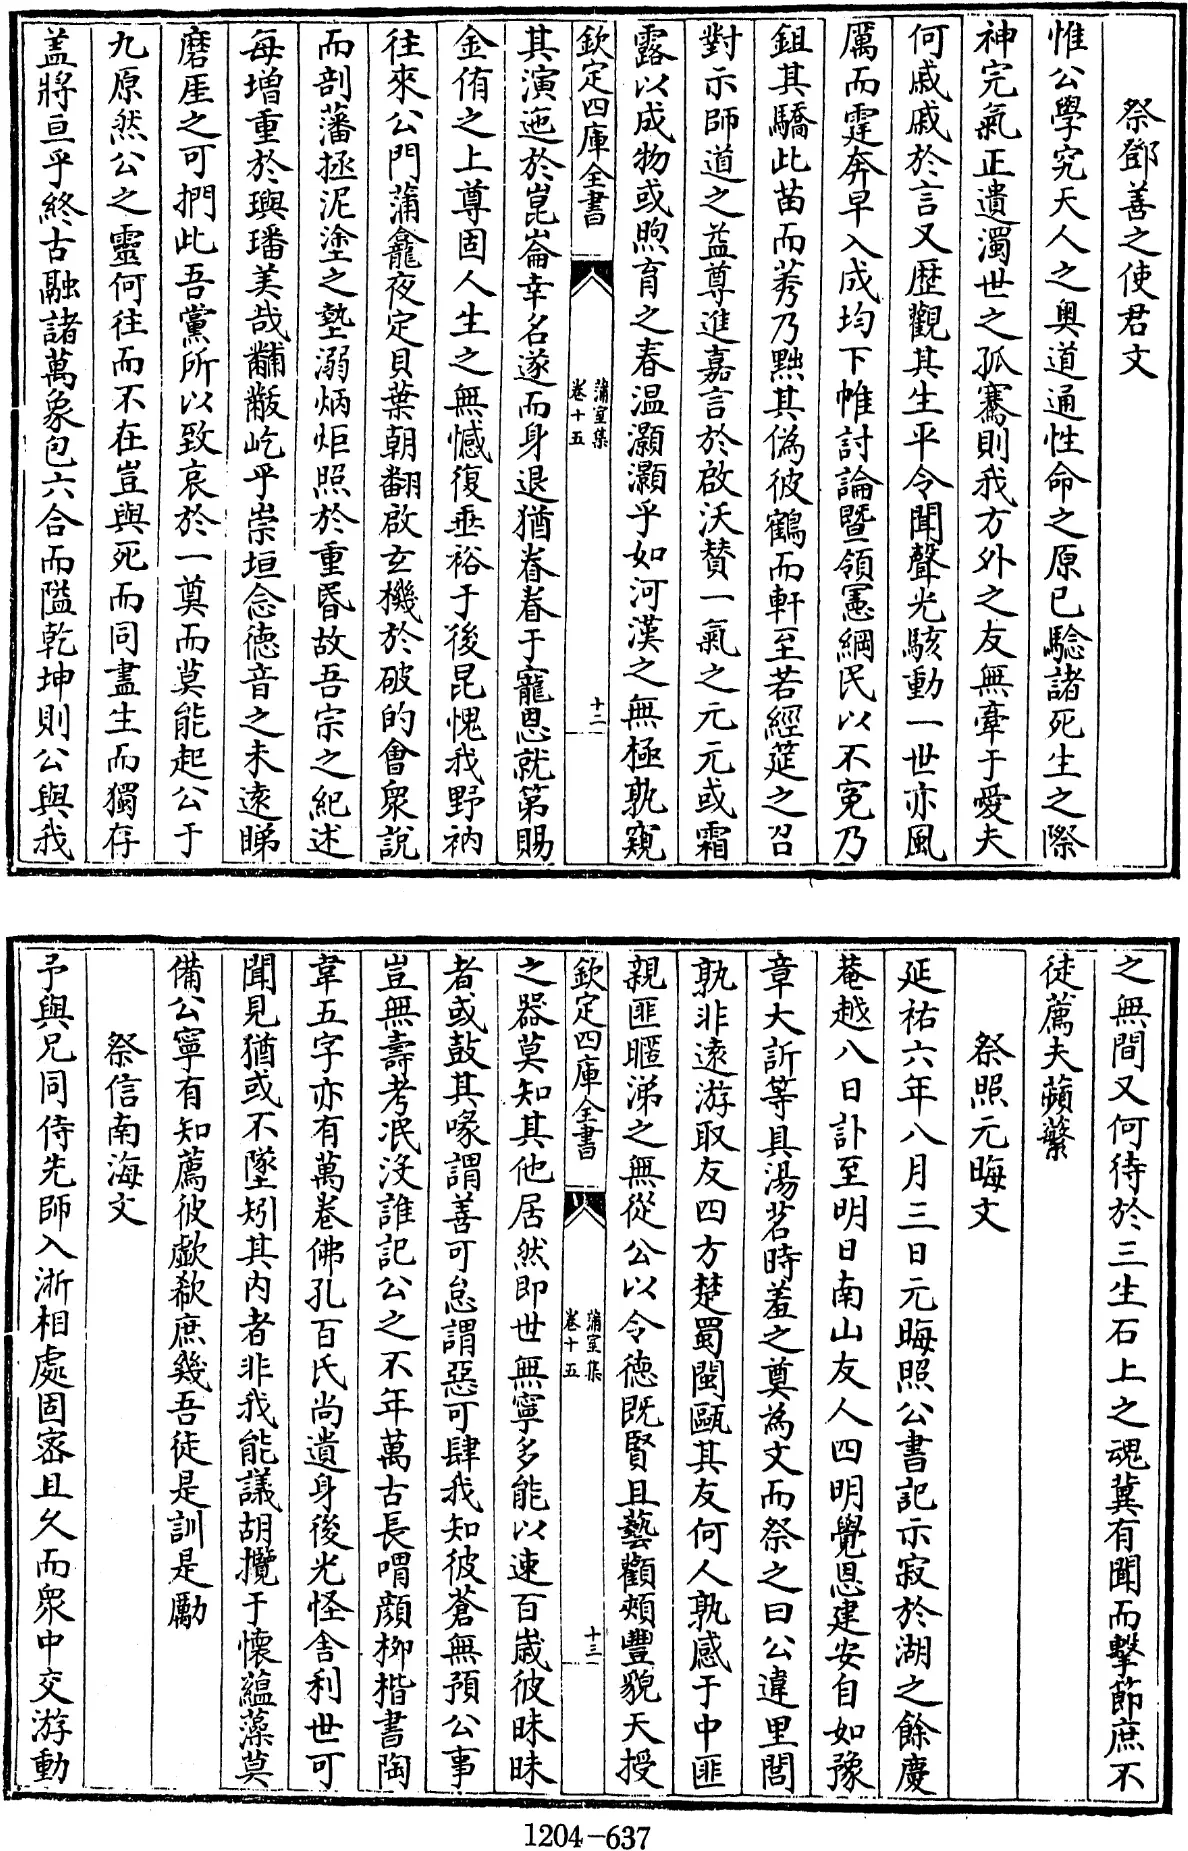 祭鄧善之使君文
惟公學究天人之奥道通性命之原已驗諸死生之際
神完氣正遺濁世之孤騫則我方外之友無牽于愛夫
何戚戚於言又歴觀其生平令聞聲光駭動一世亦風
厲而霆奔早入成均下帷討論暨領憲綱民以不寃乃
鉏其驕此苗而莠乃黜其偽彼鶴而軒至若經筵之召
對示師道之益尊進嘉言於啟沃賛一氣之元元或霜
露以成物或煦育之春温灝灝乎如河漢之無極孰窺
欽定四庫全書
蒲室集
卷十五
十二
其演迤於崑崙幸名遂而身退猶眷眷于寵恩就第賜
金侑之上尊固人生之無憾復垂裕于後昆愧我野衲
往來公門蒲龕夜定貝葉朝翻啟玄機於破的會衆說
而剖藩拯泥塗之墊溺炳炬照於重昏故吾宗之紀述
每増重於璵璠美哉黼黻屹乎崇垣念德音之未遠睇
磨厓之可捫此吾黨所以致哀於一奠而莫能起公于
九原然公之靈何往而不在豈與死而同盡生而獨存
盖將亘乎終古融諸萬象包六合而隘乾坤則公與我
之無間又何待於三生石上之魂冀有聞而擊節庶不
徒薦夫蘋蘩
祭照元晦文
延祐六年八月三日元晦照公書記示寂於湖之餘慶
菴越八日訃至明日南山友人四明覺恩建安自如豫
章大訢等具湯茗時羞之奠為文而祭之曰公違里閭
孰非逺游取友四方楚蜀閩甌其友何人孰感于中匪
親匪暱涕之無從公以令德既賢且藝顴頰豐貌天授
欽定四庫全書
蒲室集
卷十五
十三
之器莫知其他居然即世無寧多能以速百嵗彼昧昧
者或鼓其喙謂善可怠謂惡可肆我知彼蒼無預公事
豈無壽考泯沒誰記公之不年萬古長喟顔栁楷書陶
韋五字亦有萬卷佛孔百氏尚遺身後光怪舍利世可
聞見猶或不墜矧其内者非我能議胡攬于懷蘊藻莫
備公寧有知薦彼歔欷庶幾吾徒是訓是勵
祭信南海文
予與兄同侍先師入浙相處固宻且久而衆中交游動
1204-637